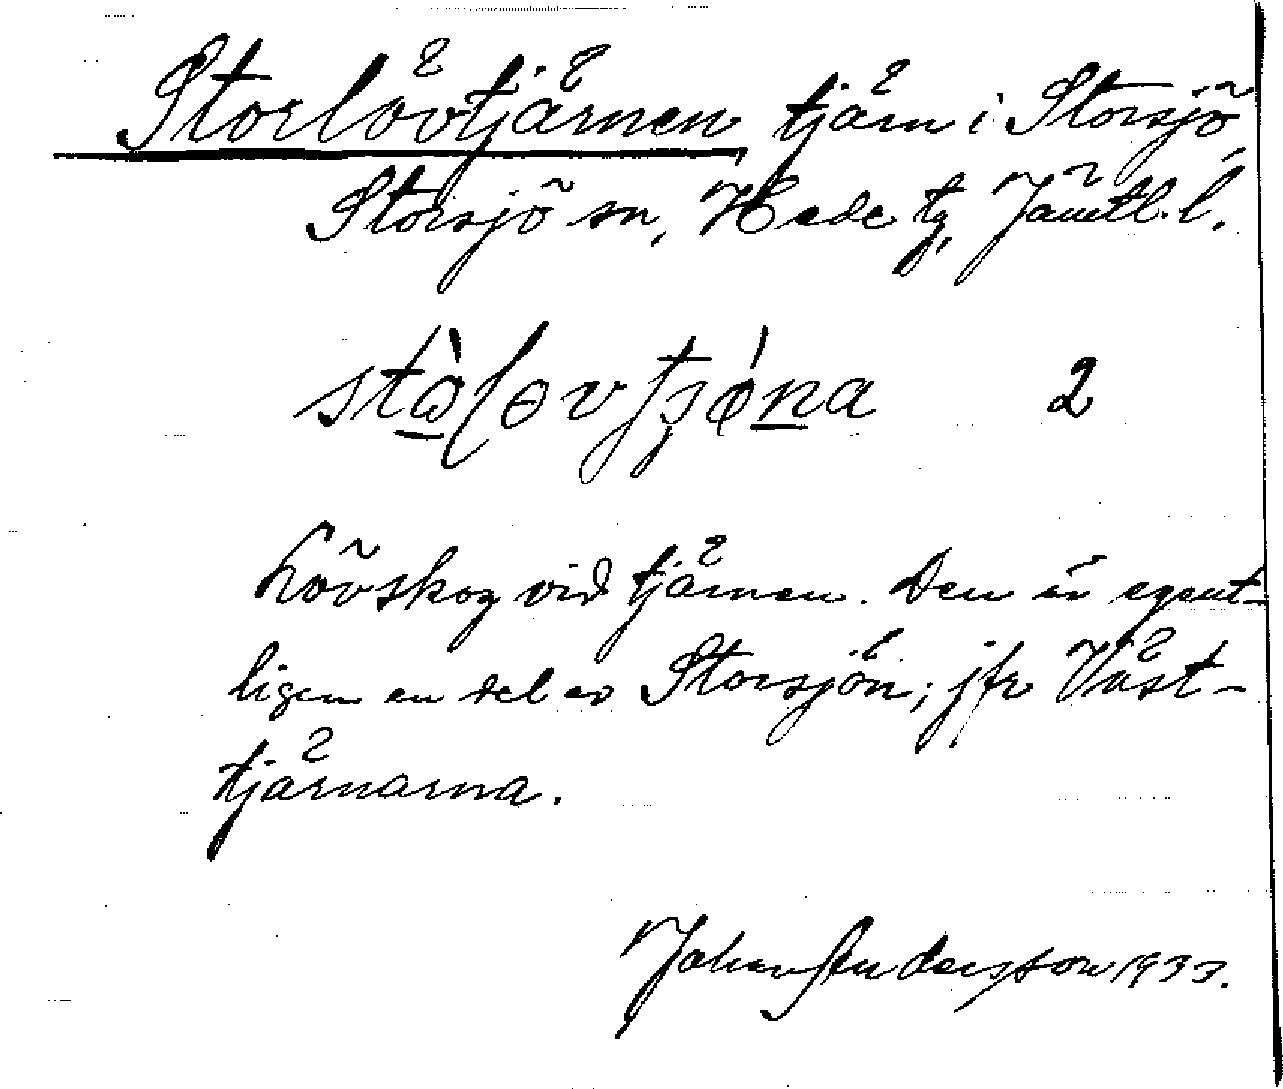 Storlövtjärnen, tjärn i Storsjö,
Storsjö sn, Hede tg, Jämtl. l.
2
Lövskog vid tjärnen. Den är egent-
ligen en del av Storsjön; jfr Väst-
tjärnarna.
Johan Andersson 1933.